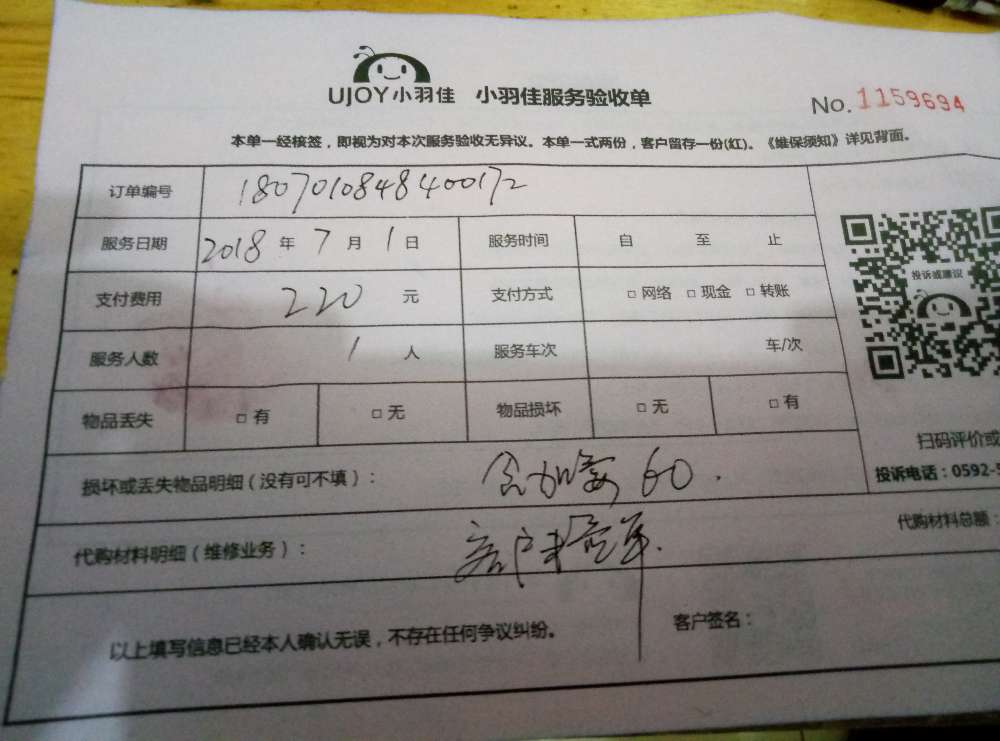 UJOY小羽佳 小羽佳服务验收单
No.1159694
本单一经核签，即视为对本次服务验收无异议。本单一式两份，客户留存一份(红)。《维保须知》详见背面。
订单编号 1807010848400172
服务日期 2018 年 7 月 1 日 服务时间 自 至 止
投诉或建议
支付费用 220 元 支付方式 □ 网络 □ 现金 □ 转账
服务人数 1 人 服务车次 车/次
物品丢失 □ 有 □ 无 物品损坏 □ 无 □ 有
扫码评价或
投诉电话：0592-5
损坏或丢失物品明细（没有可不填）： 60.
代购材料总额：
代购材料明细（维修业务）： 客户未签单.
以上填写信息已经本人确认无误，不存在任何争议纠纷。 客户签名：